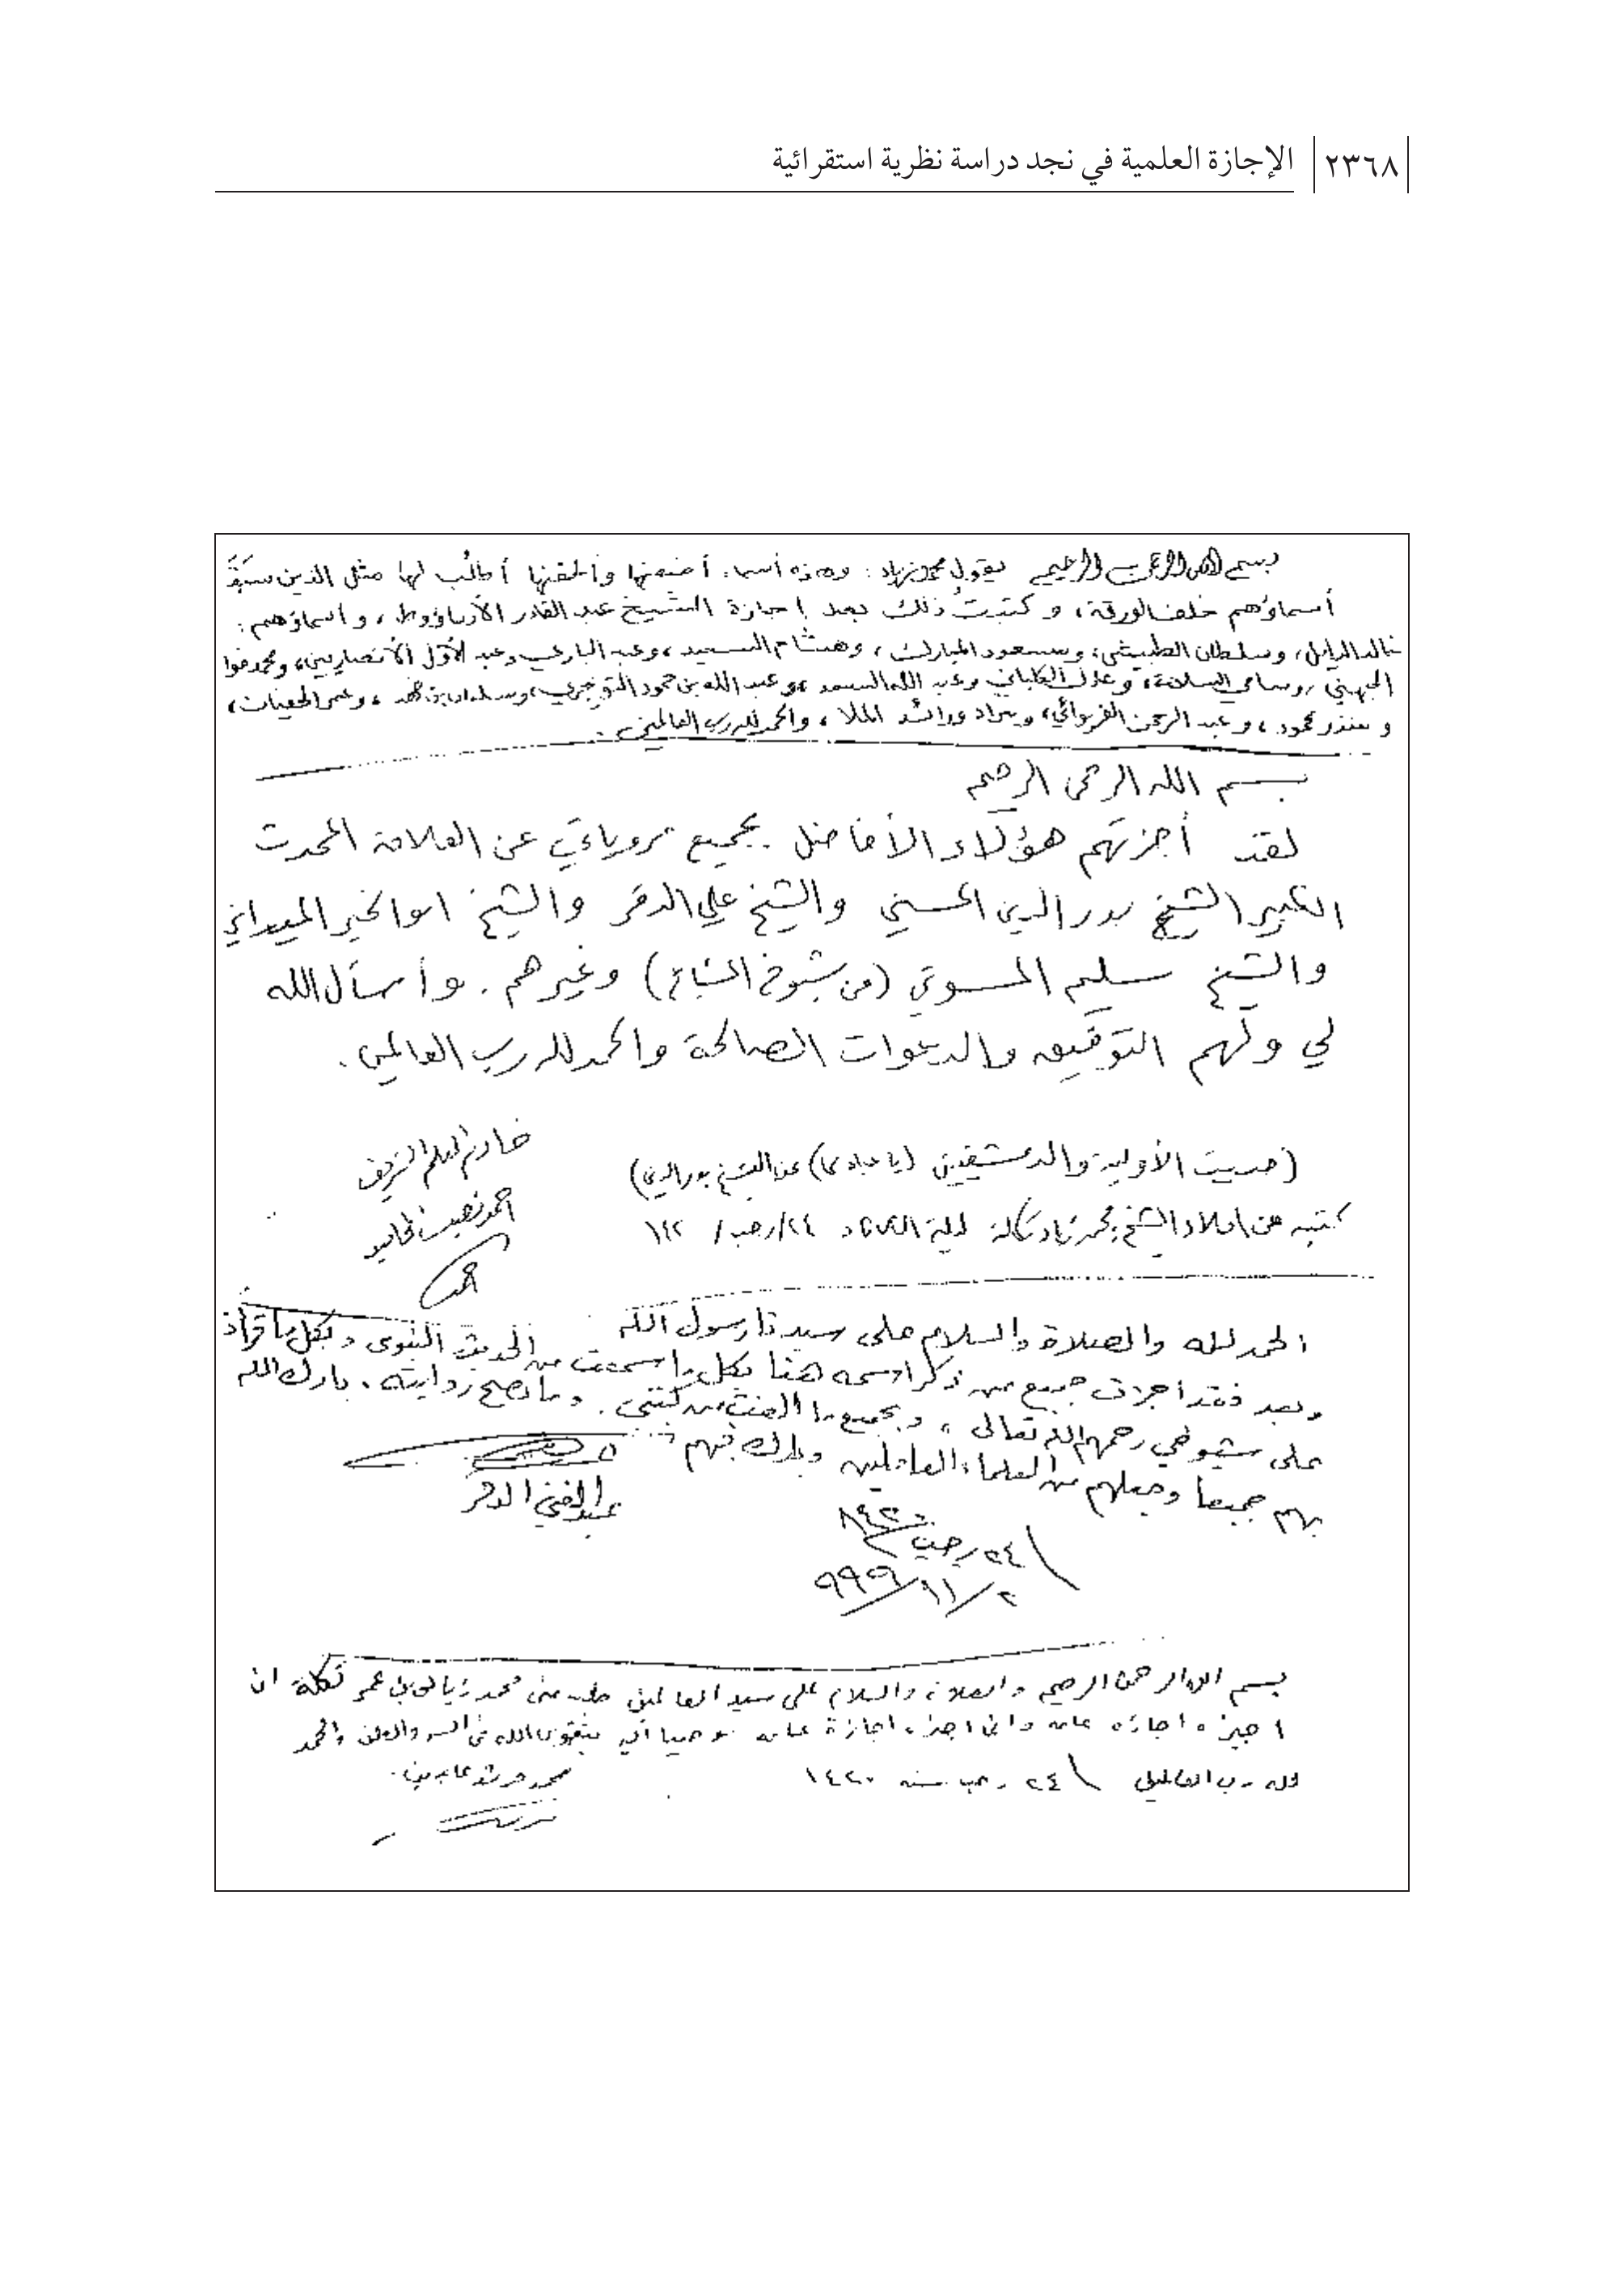 ٢٣٦٨ الإجازة العلمية في نجد دراسة نظرية استقرائية
بسم الله الرحمن الرحيم يقول محمد زياد: وهذه أسماء أضعها وألحقها أطالب لها مثل الذين سبق
أسماؤهم خلف الورقة، وكتبتُ ذلك بعد إجازة الشيخ عبد القادر الأرناؤوط، وأسماؤهم:
وسلطان الطبيشي، وسعود المبارك، وهشام السعيد، وعبد الباري وعبد الأول الأنصاريين، ومحمد
الجهني، وسامي السلامة، وعادل الكلباني وعبد الله السعد، وعبد الله بن حمود التويجري، وسلمان بن فهد، وعمر الحفيان،
ومنذر محمود، وعبد الرحمن الفريوائي، ومراد ورائد الملا، والحمد لله رب العالمين.
بسم الله الرحمن الرحيم
لقد أجزتهم هؤلاء الأفاضل بجميع مروياتي عن العلامة المحدث
الكبير الشيخ بدر الدين الحسني والشيخ علي الدقر والشيخ ابو الخير الميداني
والشيخ سليم المسوتي (من شيوخ الشام) وغيرهم. وأسأل الله
لي ولهم التوفيق والدعوات الصالحة والحمد لله رب العالمين.
(حديث الأولية والدمشقيين (يا عبادي) عن الشيخ بدر الدين)
كتبه من املاء الشيخ: محمد زياد تكلة ليلة الثلاثاء ٢٤/رجب/
خادم العلم الشريف
احمد نصيب المحاميد
الحمد لله والصلاة والسلام على سيدنا رسول الله
وبعد فقد اجزت جميع من ذكر اسمه هنا بكل ما سمعت من الحديث النبوي وبكل ما قرأت
على شيوخي رحمهم الله تعالى، وبجميع ما الفت من كتبي. وما تصح روايته. بارك الله
بهم جميعا وجعلهم من العلماء العاملين وبارك فيهم
عبد الغني الدقر
٢٤ رجب
بسم الله الرحمن الرحيم والصلاة والسلام على سيد العالمين طلب مني محمد زياد بن عمر تكلة ان
اجيزه اجازة عامة واني اجزته اجازة عامة موصيا اياه بتقوى الله في السر والعلن والحمد
لله رب العالمين ٢٤ رجب سنة ١٤٢٠
محمد مرشد عابدين